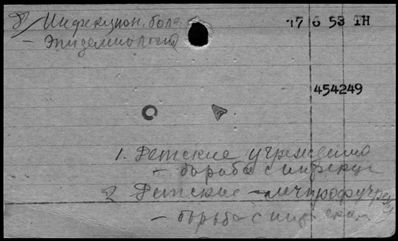 8/ Инфекцион. бол.
17 6 53 IH
— Эпидемиология
454249
1. Детские учреждения
— борьба с инфекц
2. Детские
— борьба с инфекц